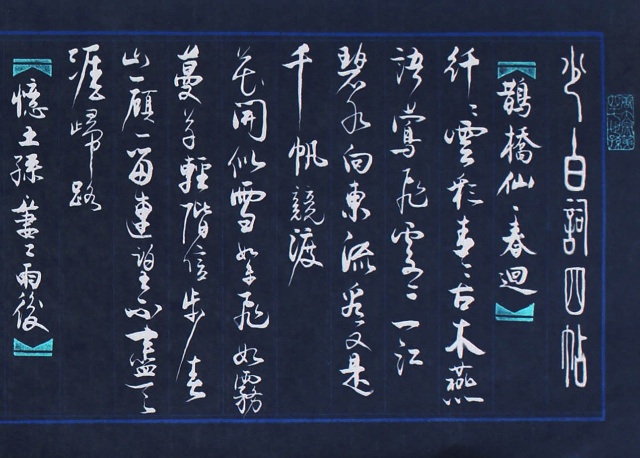 少白詞四帖
【鵲橋仙·春迴】
纤〻雲彩青〻古木燕
語鶯飛處〻一江
碧水向東流看又是
千帆競渡
花開似雪絮飛如霧
蔓草輕階信步春
山一顧一留連望不盡天
涯歸路
【憶王孫·萋〻雨後】